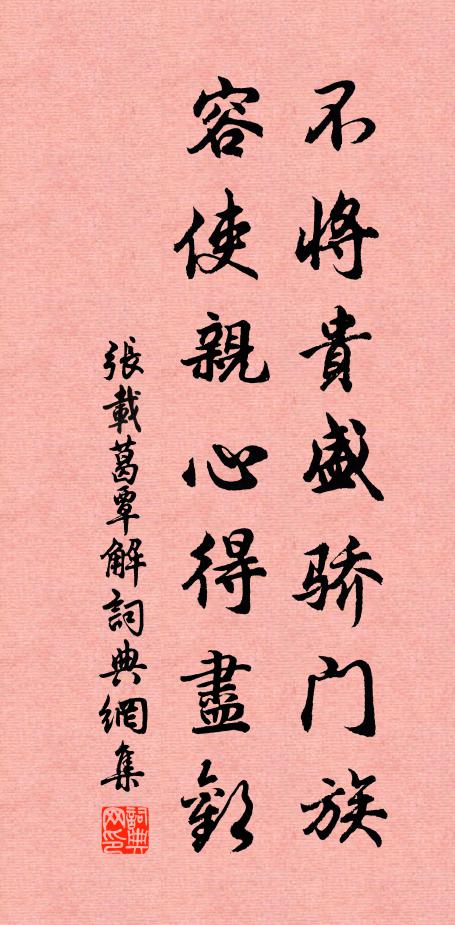 不將貴盛骄门族
容使親心得盡歡
張載葛覃解詞典網集
詞典
网印